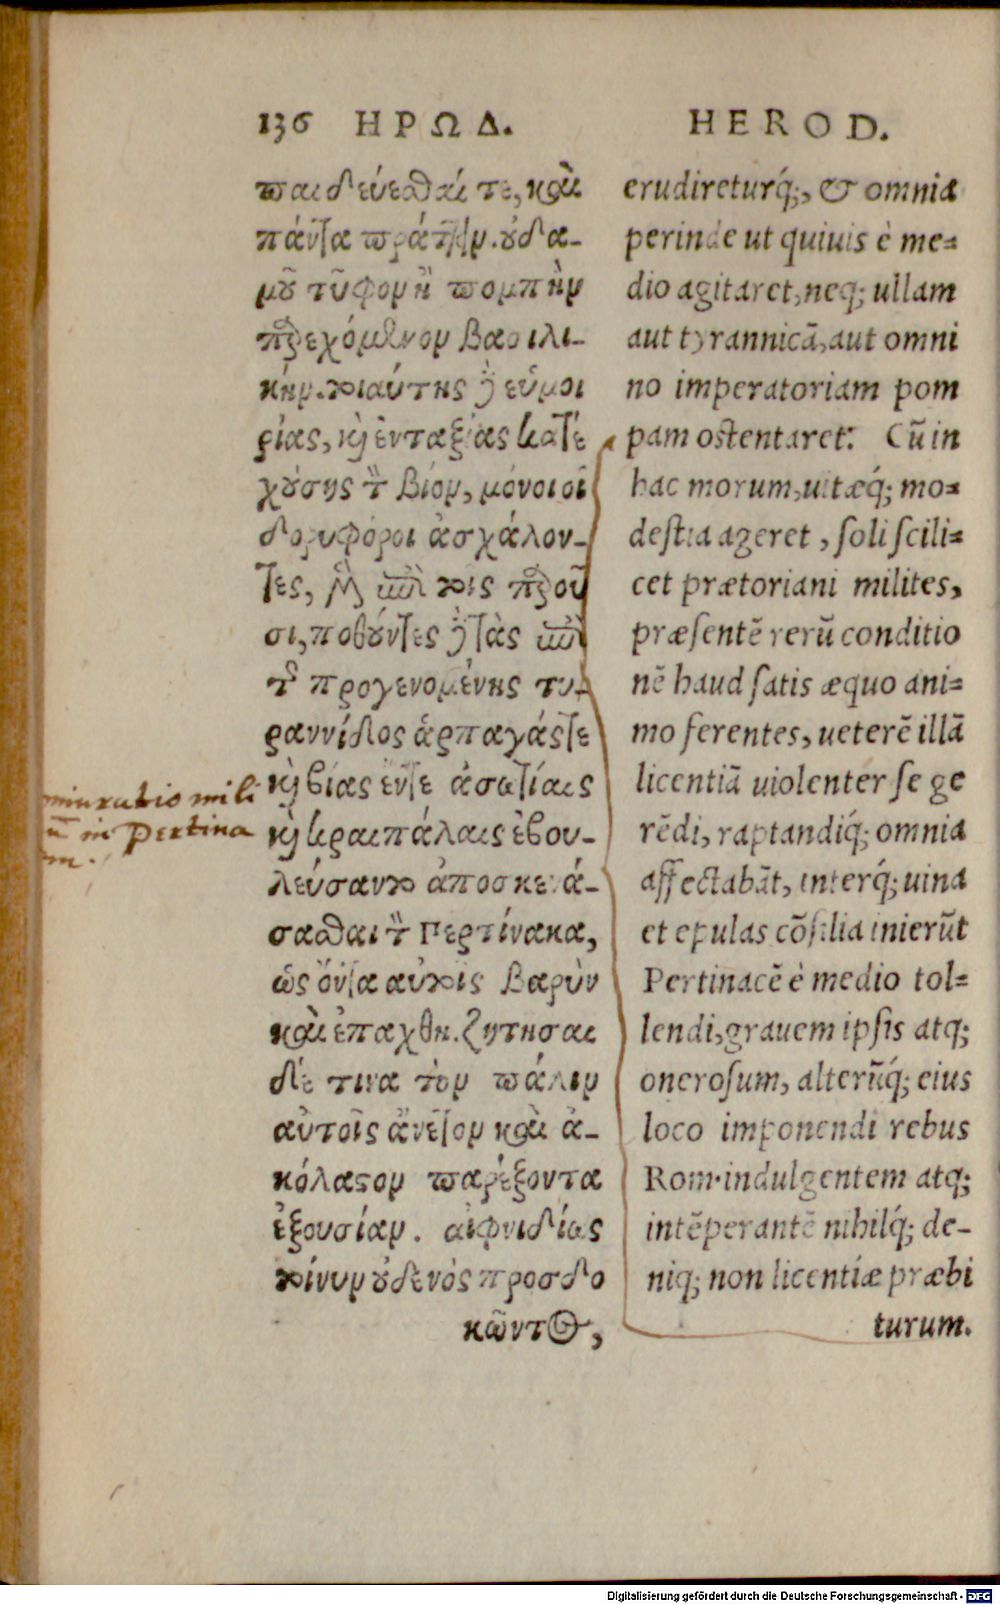 136 ΗΡΩΔ.
παιδεύεσθαί τε, καὶ
πάντα πράττειν. οὐδα-
μοῦ τῦφον ἢ πομπὴν
παρεχόμενον βασιλι-
κήν. τοιαύτης δὲ εὐμοι
ρίας, καὶ ἐνταξίας κατε
χούσης τὸν βίον, μόνοι οἱ
δορυφόροι ἀσχάλον-
τες, μὲν ἐπὶ τοῖς παροῦ
σι, ποθοῦντες δὲ τὰς ἐπὶ
τῆς προγενομένης τυ-
ραννίδος ἁρπαγάς τε
καὶ βίας ἔν τε ἀσωτίαις
καὶ κραιπάλαις ἐβου-
λεύσαντο ἀποσκευά-
σασθαι τὸν Περτίνακα,
ὡς ὄντα αὐτοῖς βαρὺν
καὶ ἐπαχθῆ. ζητῆσαι
δέ τινα τὸν πάλιν
αὐτοῖς ἄνετον καὶ ἀ-
κόλαστον παρέξοντα
ἐξουσίαν. αἰφνιδίως
τοίνυν οὐδενὸς προσδο
κῶντος,
HEROD.
erudireturq́;, & omnia
perinde ut quiuis è me=
dio agitaret, neq; ullam
aut tyrannicã, aut omni
no imperatoriam pom
pam ostentaret: Cũ in
hac morum, uitæq́; mo=
destia ageret, soli scili=
cet prætoriani milites,
præsentẽ rerũ conditio
nẽ haud satis æquo ani=
mo ferentes, ueterẽ illã
licentiã uiolenter se ge
rẽdi, raptandiq́; omnia
affectabãt, interq́; uina
et epulas cõsilia inierũt
Pertinacẽ è medio tol=
lendi, grauem ipsis atq;
onerosum, alterũq́; eius
loco imponendi rebus
Rom. indulgentem atq;
intẽperantẽ nihilq́; de-
niq; non licentiæ præbi
turum.
miuratio mili
ũ in Pertina
m.
Digitalisierung gefördert durch die Deutsche Forschungsgemeinschaft - DFG